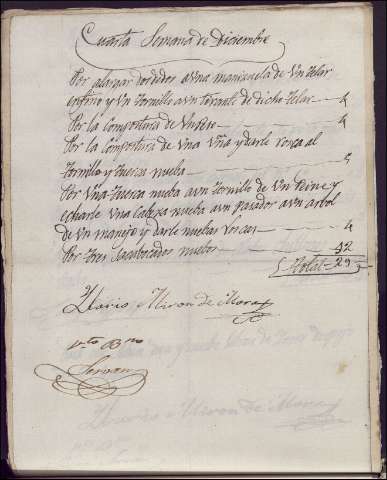 Cuarta Semana de Diciembre
Por alargar dos dedos a una manizuela de Un telar
enfino y Un tornillo a un torante de dicho telar — 4
Por la Compostura de Un Pie — 4
Por la Compostura de Una Uña y darle rosca al
tornillo y tuerca nueba — 5
Por Una tuerca nueba a un tornillo de Un Peine y
echarle Una Cabeza nueba a un pasador a un arbol
de Un manejo y darle nuebas roscas — 4
Por tres Sacabocados nuebos — 12
Total - 29
Ylario Miron de Mora
Vto Bno
Servan